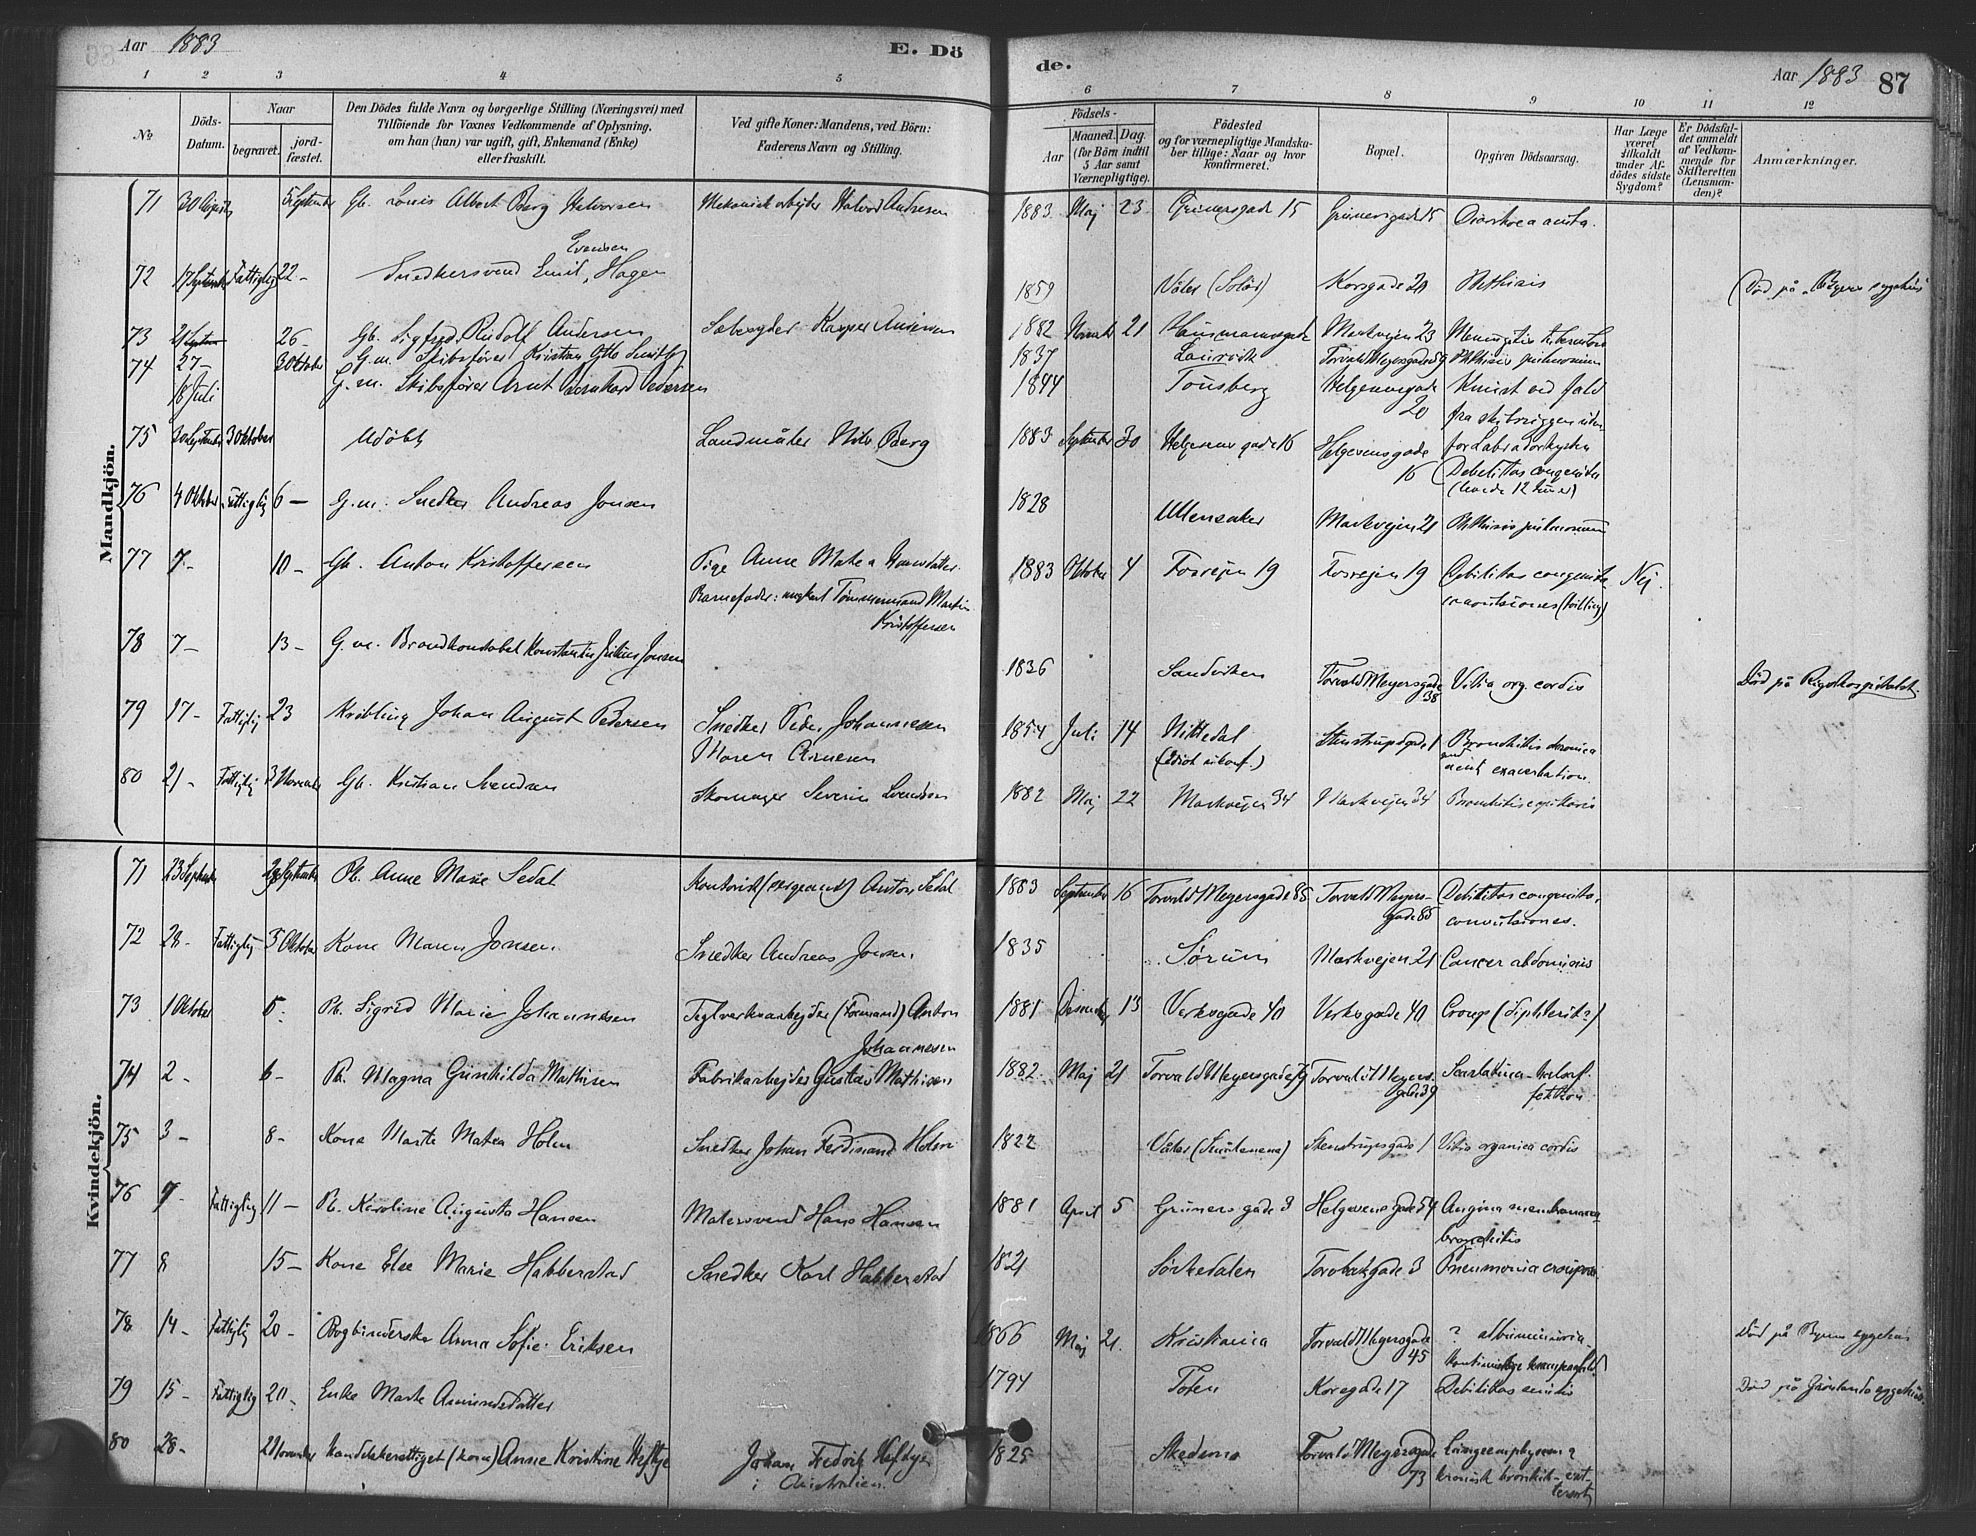 Aar 1883
E. Dö
de.
Aar 1883 87
1 2 3 4 5 6 7 8 9 10 11 12
No
Döds-
Datum.
Naar
begravet.
jord-
fæstet.
Den Dödes fulde Navn og borgerlige Stilling (Næringsvei) med
Tilföiende for Voxnes Vedkommende af Oplysning,
om han (hun) var ugift, gift, Enkemand (Enke)
eller fraskilt.
Ved gifte Koner: Mandens, ved Börn:
Faderens Navn og Stilling.
Födsels-
Aar
Maaned. Dag.
(for Börn indtil
5 Aar samt
Værnepligtige).
Födested
og for værnepligtige Mandska-
ber tillige: Naar og hvor
konfirmeret.
Bopæl.
Opgiven Dödsaarsag.
Har Læge
været
tilkaldt
under Af-
dödes sidste
Sygdom?
Er Dödsfal-
det anmeldt
af Vedkom-
mende for
Skifteretten
(Lensman-
den)?
Anmærkninger.
Mandkjön.
71 30 August 5 September Gb. Louis Albert Berg Halvorsen Mekanisk arbejder Halvord Andresen 1883 Maj 23 Grünersgade 15 Grünersgade 15 Diarrhoea acuta.
Evensen
72 17 September Fattiglig 22 - Snedkersvend Emil, Hagen 1859 Våler (Solör) Korsgade 20 Phthisis (Död på Byens sygehus
73 21 26 - Gb. Sigfred Rudolf Andersen Kasper Andersen 1882 Novemb 21 Hausmannsgade Markvejen 23 Meningitis tuberculosa
74 27 - 3 Oktober G.m. Skibsfører Kristian Otto Smith 1837 Laurvik Torvald Meyersgade Phthisis pulmonum
18 Juli G.m. Skibsfører Arnt Bernhard Pedersen 1844 Tönsberg Helgesensgade 20 Knust ved fald
fra skibsriggen uden
for Labradorkysten
75 30 September 3 Oktober Udöbt Landmåler Nils Berg 1883 September 30 Helgesens gade 16 Helgesensgade 16 Debilitas congenita
(levede 12 timer)
76 4 Oktober Fattiglig 6 - G.m. Snedker Andreas Jonsen 1828 Ullensaker Markvejen 21 Phthisis pulmonum
77 7 - 10 - Gb. Anton Kristoffersen Pige Anne Mathea 1883 Oktober 4 Fosvejen 19 Fosvejen 19 Debilitas congenita Nej.
Barnefader: ungkarl Tømmermand Martin
Kristoffersen
(tvilling)
78 7 - 13 - G.m. Brandkonstabel Konstantin Julius Jonsen 1836 Sandviken Torvald Meyersgade 38 Vitia org. cordis Död på Rigshospitalet.
79 17 - Fattiglig 23 Krøbling Johan August Pedersen Snedker Peder Johannesen 1854 Juli 14 Nittedal Stenstrupsgade 1 Bronchitis chronica
Maren Arnesen (Idiot ukonf.) acut exacerbation.
80 21 - Fattiglig 3 November Gb. Kristian Svendsen Skomager Severin Svendsen 1882 Maj 22 Markvejen 34 Markvejen 34 Bronchitis capillaris
Kvindekjön.
71 23 September 28 September Pb. Anne Marie Sedal Kontorist (sergeant) Anton Sedal 1883 September 16 Torvald Meyersgade 85 Torvald Meyers-
gade 85 Debilitas congenita,
convulsiones.
72 28 - Fattiglig 5 Oktober Kone Maren Jonsen. Snedker Andreas Jonsen. 1835 Sørum Markvejen 21 Cancer abdominis
73 1 Oktober 5 - Pb. Sigrid Marie Johannesen Teglverksarbejder (Formand) Anton
Johannesen 1881 December 13 Verksgade 40 Verksgade 40 Croup (diphterit?)
74 2 - 6 - Pb. Magna Gunhilda Mathisen Fabrikarbejder Gustav Mathisen 1882. Maj 21 Torvald Meyersgade 39 Torvald Meyers-
gade 39 Scarlatina
75 3 - 8 - Kone Marte Matea Holm Snedker Johan Ferdinand Holm 1822 Våler (Smålenene) Stenstrupsgade 1 Vitia organica cordis
76 7 - Fattiglig 11 - Pb. Karoline Augusta Hansen Malersvend Hans Hansen 1881 April 5 Grüners gade 3 Helgesens gade 54 Angina membranacea
bronchitis
77 8 15 - Kone Else Marie Habberstad Snedker Karl Habberstad 1821 Sörkedalen Torvbakgade 3 Pneumonia crouposa
78 14 - Fattiglig 20 - Bogbinderske Anna Sofie Eriksen 1866 Maj 21. Kristiania Torvald Meyersgade
45 ? albuminuria Död på Byens sygehus
79 15 - Fattiglig 20 - Enke Marte Amundsdatter 1794 Toten Korsgade 17 Debilitas senilis Död på Grønlands sygehus
80 28 - 2 November Handelsberettiget (kone) Anne Kristine Heftye Johan Fredrik Heftye
i Australien. 1825 Skedsmo Torvald Meyersgade
73 Lungeemphysem?
kronisk bronkit